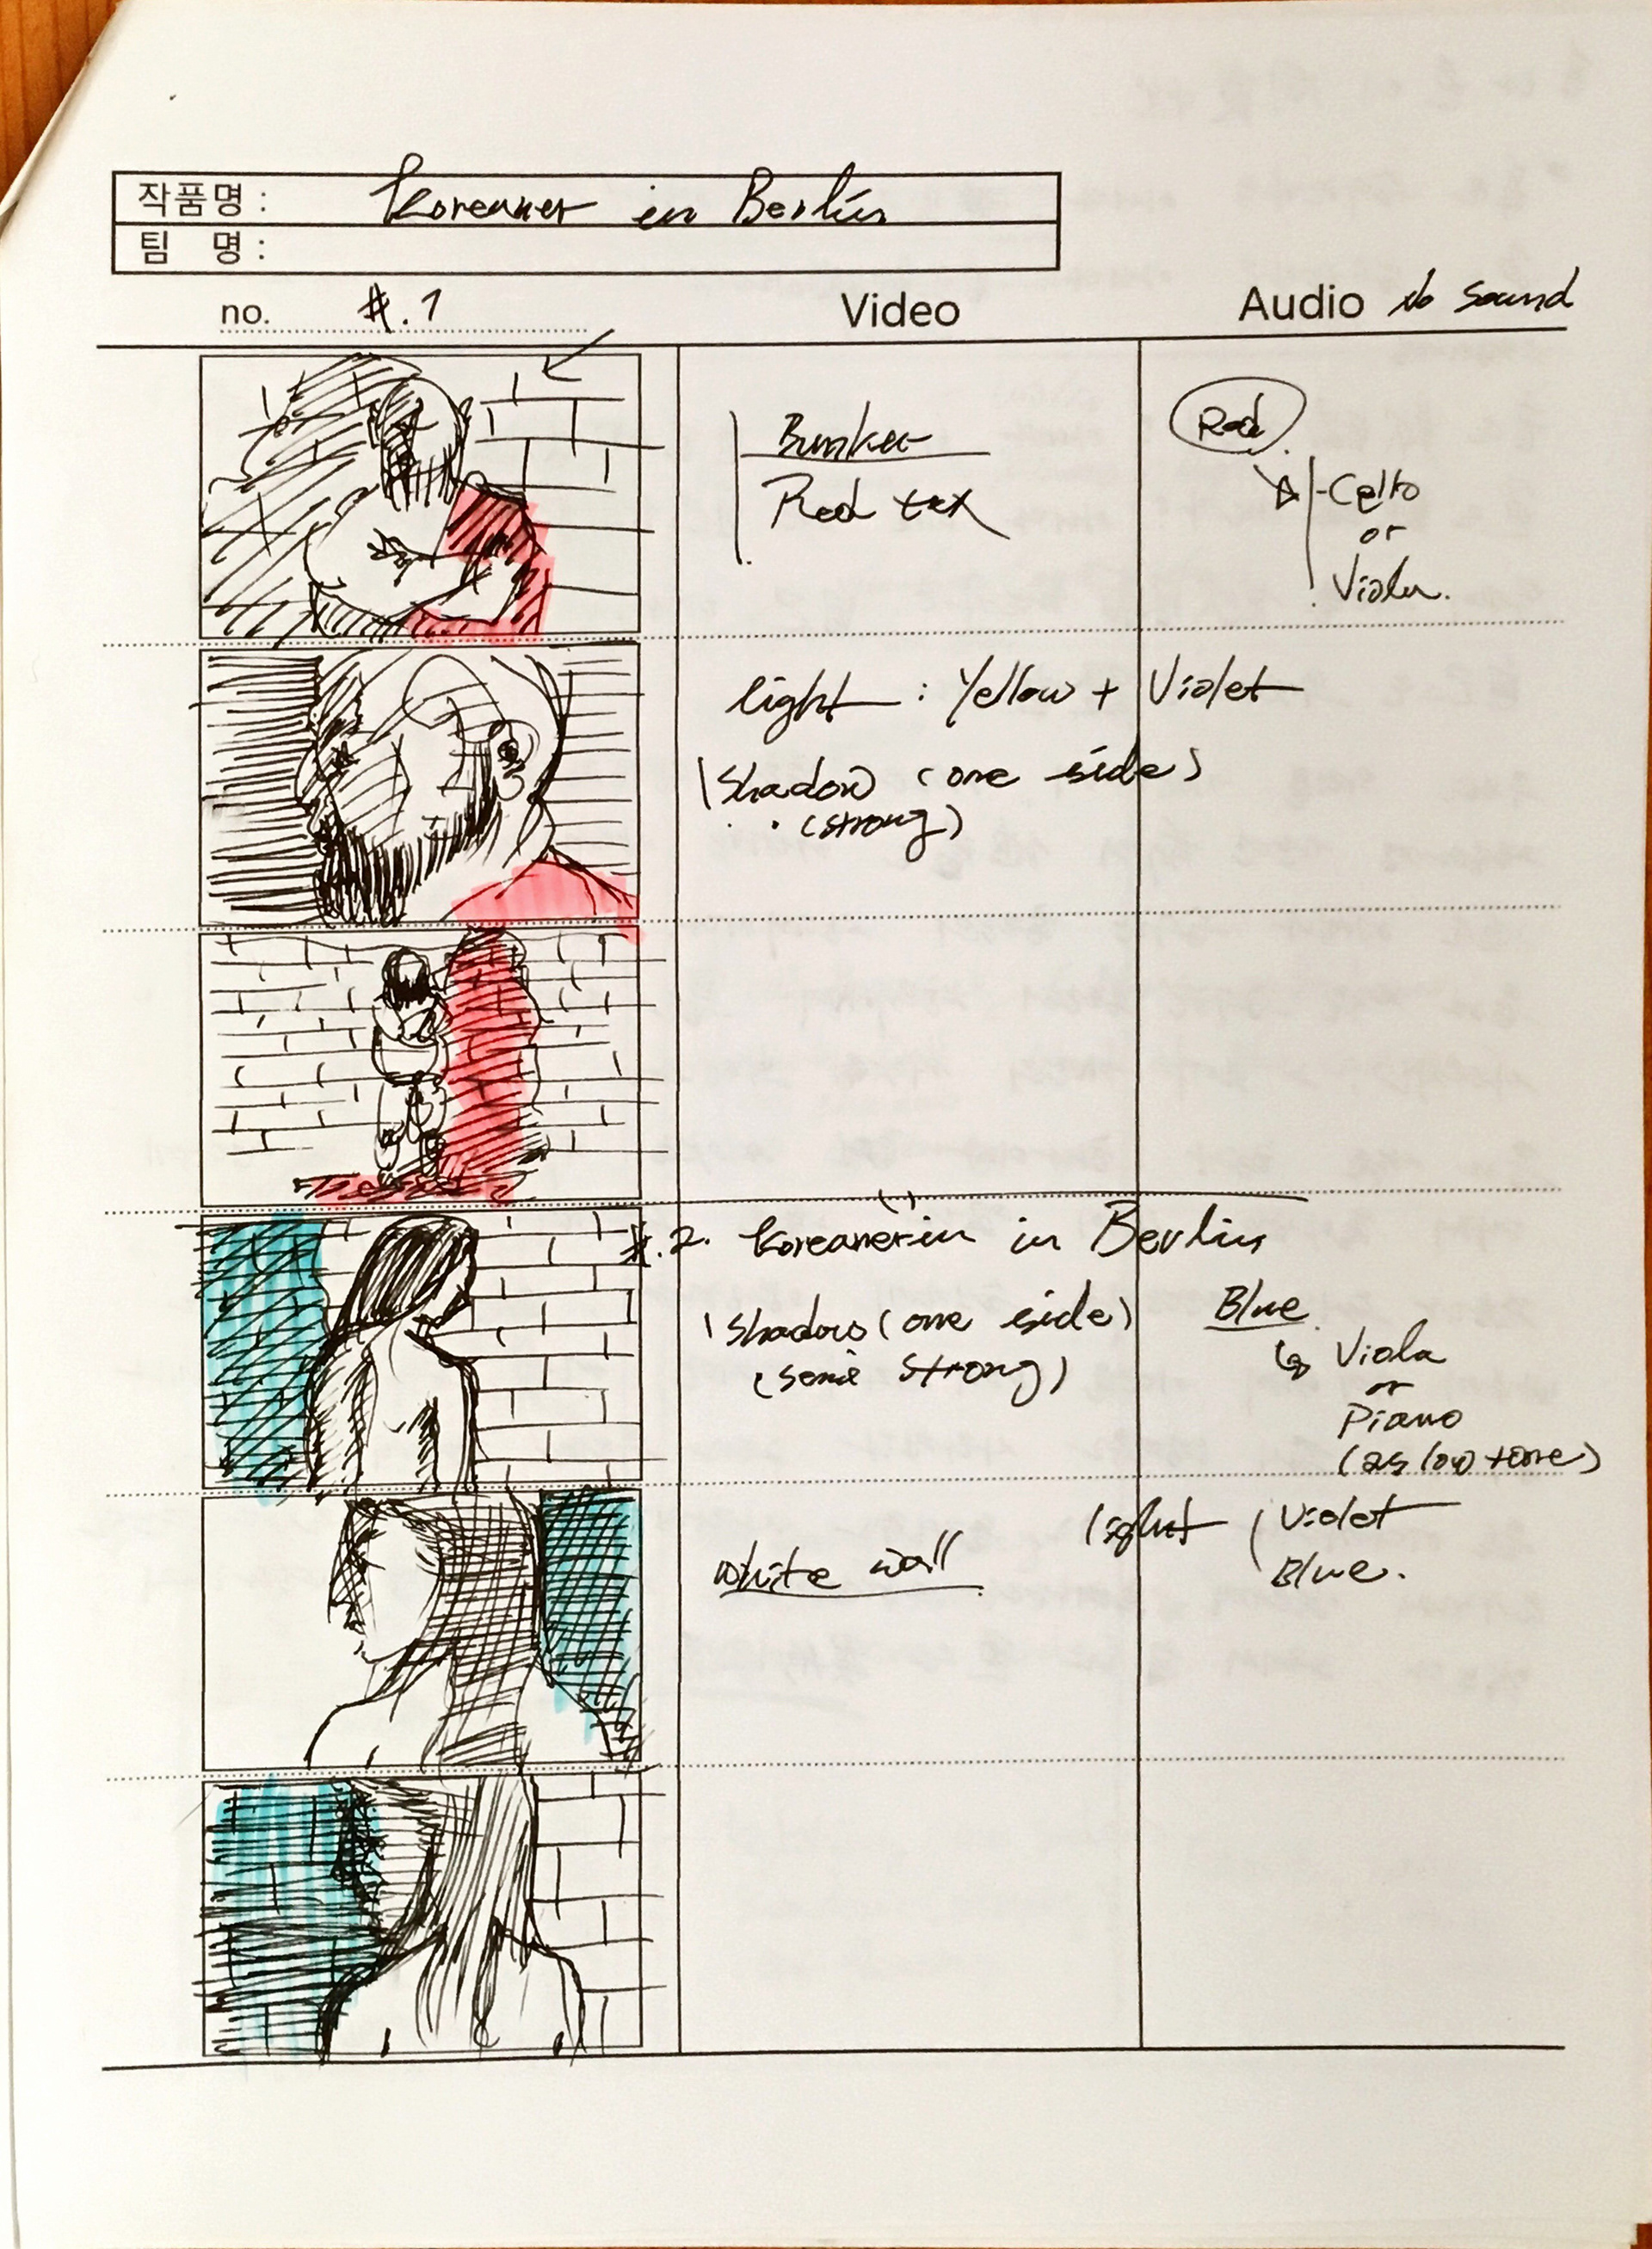 작품명 : Koreaner in Berlin
팀 명 :
no. #.1 Video Audio No Sound
Bunker
Red
Red
Cello
or
Viola.
light : Yellow + Violet
Shadow (one side)
(strong)
#.2. Koreanerin in Berlin
Shadow (one side)
(semi strong)
Blue
Viola
or
Piano
(as low tone)
white wall
light
Violet
Blue.